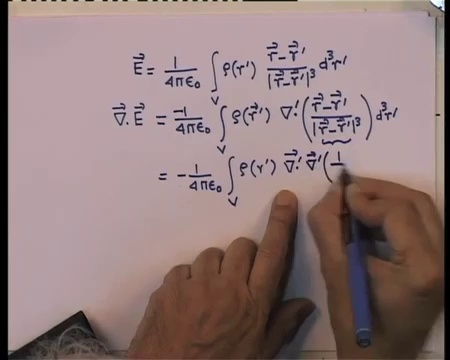 E⃗ = 1/4πϵ₀ ∫_V ρ(r') (r⃗ - r⃗')/|r⃗ - r⃗'|³ d³r'
∇⃗·E⃗ = -1/4πϵ₀ ∫_V ρ(r⃗') ∇⃗'·((r⃗ - r⃗')/|r⃗ - r⃗'|³) d³r'
= -1/4πϵ₀ ∫_V ρ(r') ∇⃗'·∇⃗'(1/